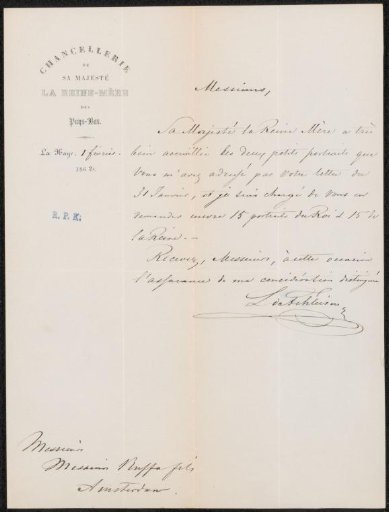 CHANCELLERIE
DE
SA MAJESTÉ
LA REINE-MÈRE
DES
Pays-Bas.
La Haye, 1 février
186
R.P.K.
Messieurs,
Sa Majesté la Reine Mère a très
bien accueilli les deux petits portraits que
vous m'avez adressé par votre lettre du
31 Janvier, et je suis chargé de vous en
demander encore 15 portraits du Roi & 15 de
la Reine.—
Recevez, Messieurs, à cette occasion
l'assurance de ma considération distinguée
Messieurs
Messieurs Buffa & fils
Amsterdam.